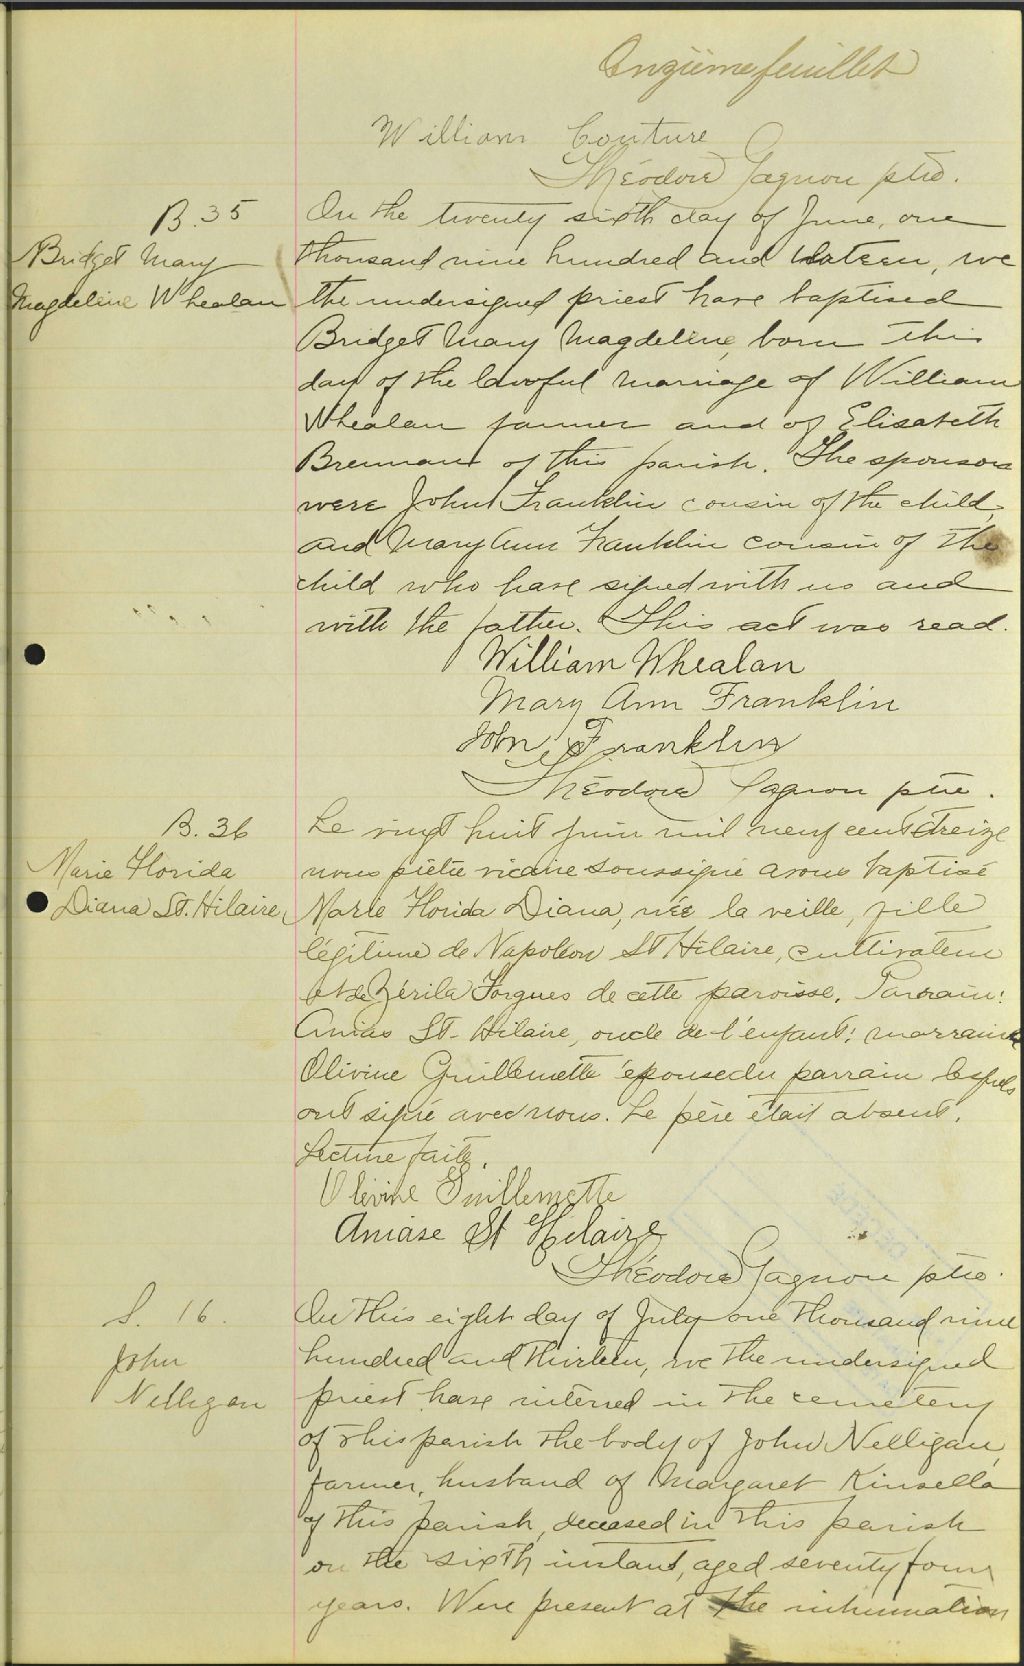 Onzième feuillet
William Couture
Théodore Gagnon ptre.
B. 35
Bridget Mary
Magdeline Whealan
On the twenty sixth day of June, one
thousand nine hundred and thirteen, we
the undersigned priest have baptised
Bridget Mary Magdeline, born this
day of the lawful marriage of William
Whealan farmer and of Elisabeth
Brennan of this parish. The sponsors
were John Franklin cousin of the child,
and Mary Ann Franklin cousin of the
child who have signed with us and
with the father. This act was read.
William Whealan
Mary Ann Franklin
John Franklin
Théodore Gagnon ptre.
B. 36
Marie Florida
Diana St. Hilaire
Le vingt huit juin mil neuf cent treize
nous prêtre vicaire soussigné avons baptisé
Marie Florida Diana, née la veille, fille
légitime de Napoléon St Hilaire, cultivateur
et de Zérila Forgues de cette paroisse. Parrain:
Amias St-Hilaire, oncle de l'enfant: marraine
Olivine Guillemette épouse du parrain lesquels
ont signé avec nous. Le père était absent.
Lecture faite.
Olivine Guillemette
Amiase St Hilaire
Théodore Gagnon ptre.
S. 16.
John
Nelligan
On this eight day of July one thousand nine
hundred and thirteen, we the undersigned
priest have interred in the cemetery
of this parish the body of John Nelligan,
farmer, husband of Margaret Kinsella
of this parish, deceased in this parish
on the sixth instant, aged seventy four
years. Were present at the inhumation